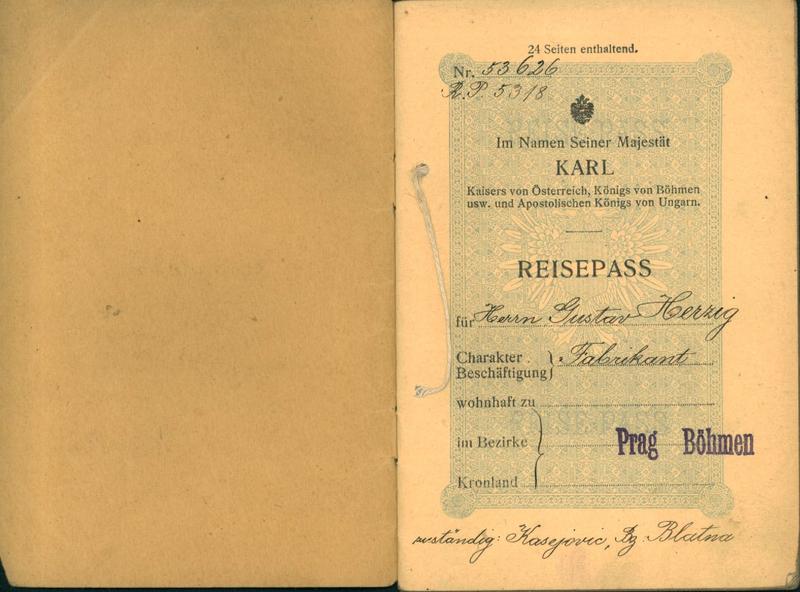 24 Seiten enthaltend.
Nr. 53626
R.P. 5318
Im Namen Seiner Majestät
KARL
Kaisers von Österreich, Königs von Böhmen
usw. und Apostolischen Königs von Ungarn.
REISEPASS
für Herrn Gustav Herzig
Charakter } Fabrikant
Beschäftigung
wohnhaft zu
im Bezirke } Prag Böhmen
Kronland
zuständig: Kasejovic, Bz. Blatna